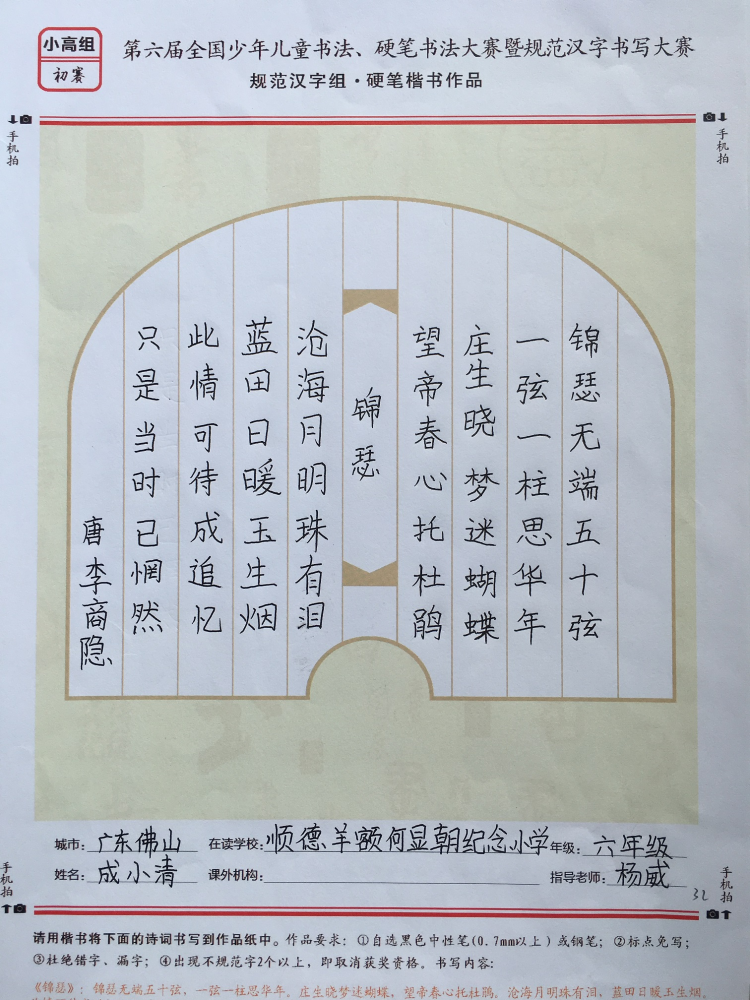 小高组
初赛
第六届全国少年儿童书法、硬笔书法大赛暨规范汉字书写大赛
规范汉字组·硬笔楷书作品
手机拍
手机拍
锦瑟无端五十弦
一弦一柱思华年
庄生晓梦迷蝴蝶
望帝春心托杜鹃
锦瑟
沧海月明珠有泪
蓝田日暖玉生烟
此情可待成追忆
只是当时已惘然
唐李商隐
城市：广东佛山 在读学校：顺德羊额何显朝纪念小学 年级：六年级
姓名：成小清 课外机构： 指导老师：杨威
32
手机拍
手机拍
请用楷书将下面的诗词书写到作品纸中。作品要求：①自选黑色中性笔(0.7mm以上)或钢笔；②标点免写；
③杜绝错字、漏字；④出现不规范字2个以上，即取消获奖资格。书写内容：
《锦瑟》：锦瑟无端五十弦，一弦一柱思华年。庄生晓梦迷蝴蝶，望帝春心托杜鹃。沧海月明珠有泪，蓝田日暖玉生烟。